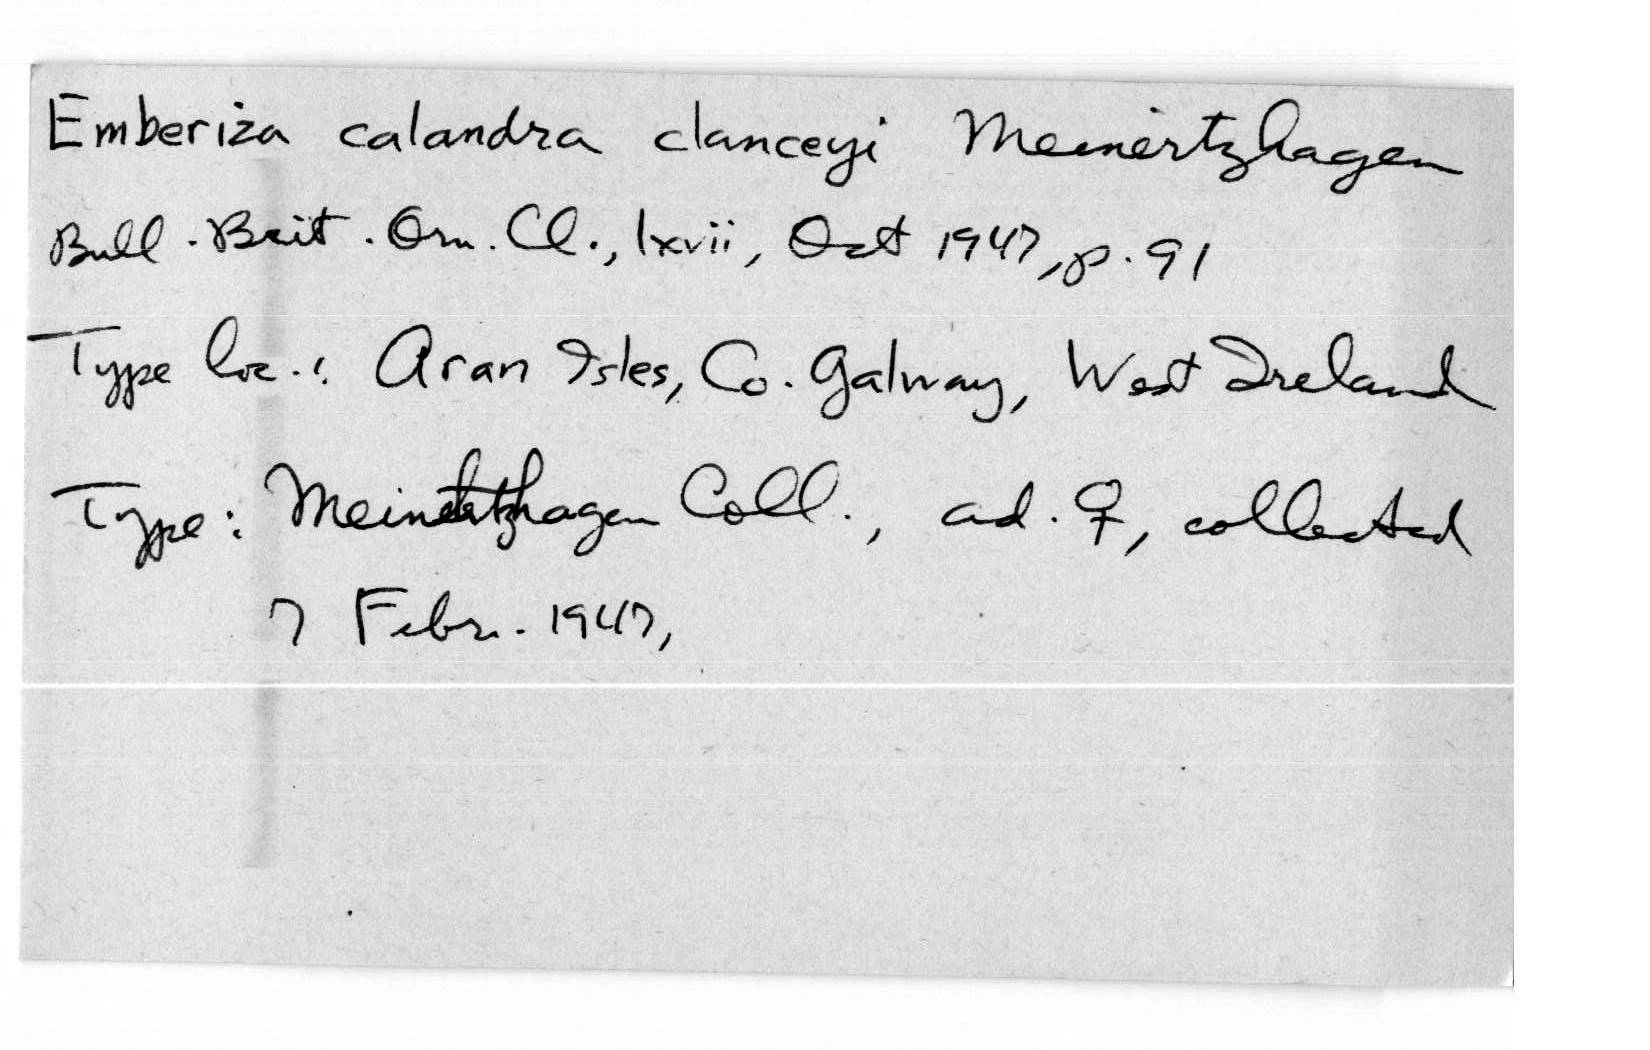 Emberiza calandra clanceyi Meinertzhagen
Bull. Brit. Orn. Cl., lxvii, Oct 1947, p. 91
Type loc.: Aran Isles, Co. Galway, West Ireland
Type: Meinertzhagen Coll., ad. ♀, collected
7 Febr. 1947,